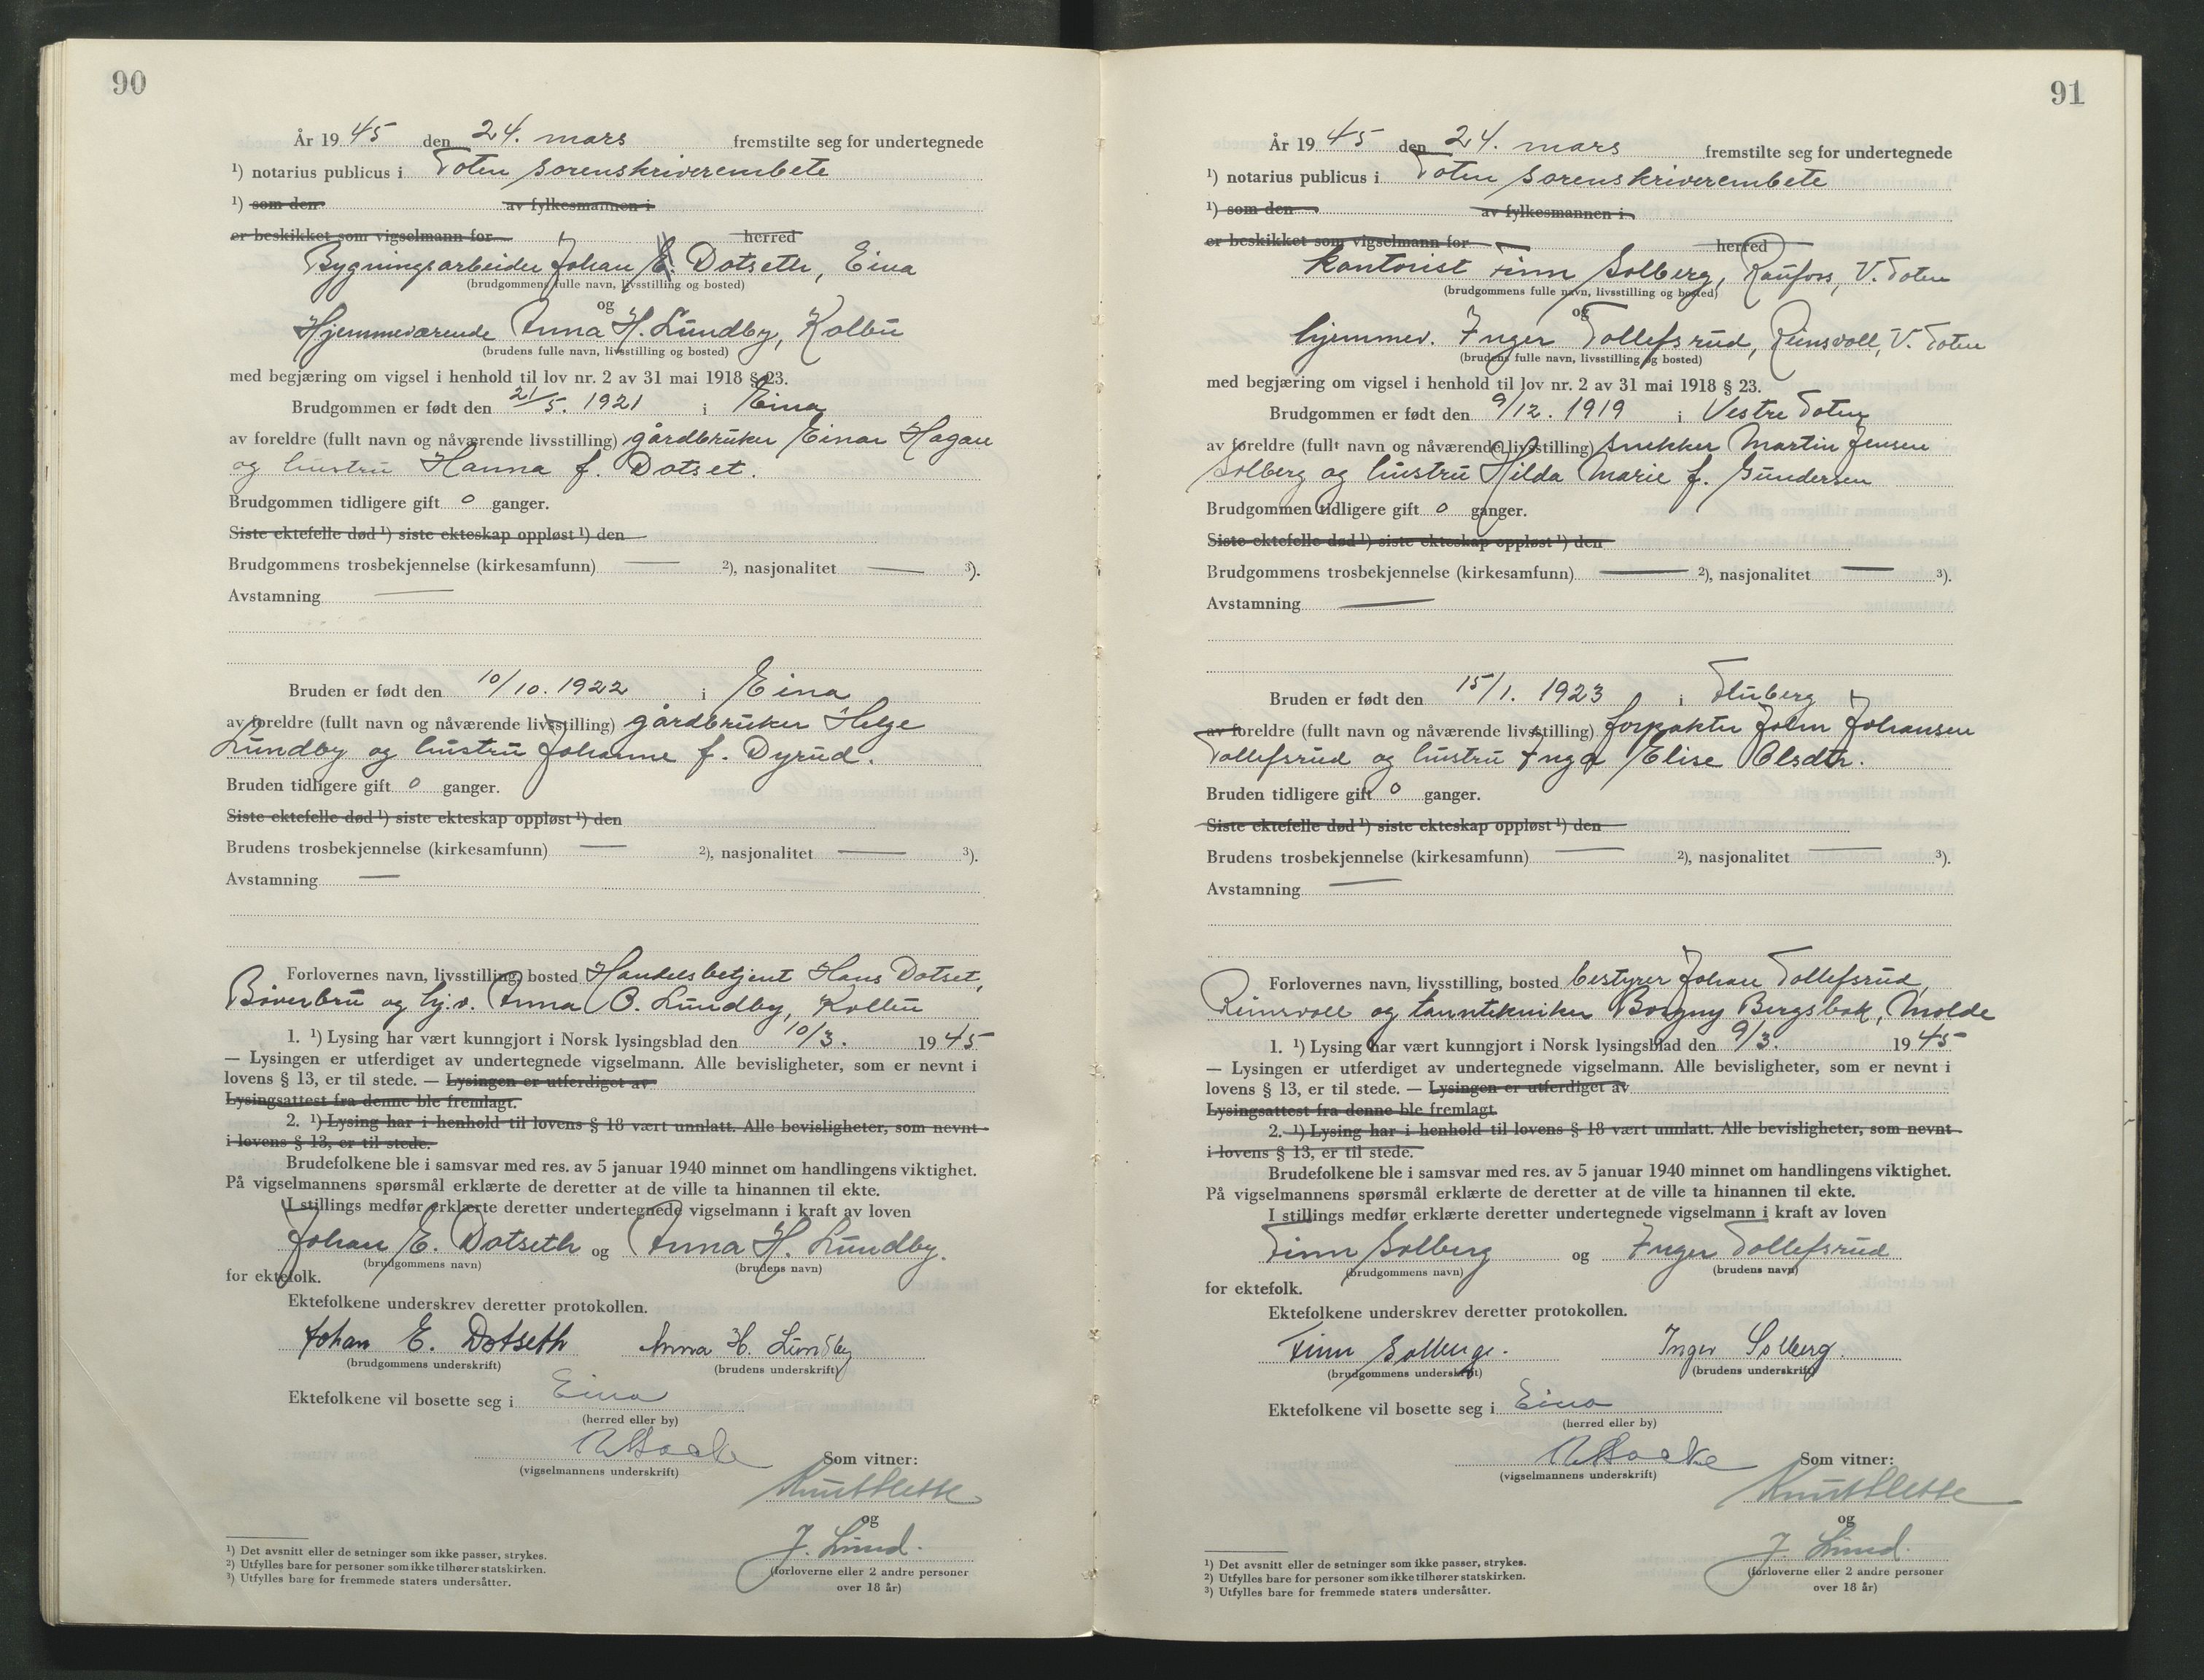 90
År 1945 den 24. mars fremstilte seg for undertegnede
1) notarius publicus i Toten sorenskriverembete
1) som den av fylkesmannen i
er beskikket som vigselmann for herred
Bygningsarbeider Johan E. Dotseth, Eina
(brudgommens fulle navn, livsstilling og bosted)
og
Hjemmeværende Anna H. Lundby, Kolbu
(brudens fulle navn, livsstilling og bosted)
med begjæring om vigsel i henhold til lov nr. 2 av 31 mai 1918 § 23.
Brudgommen er født den 21/5. 1921 i Eina
av foreldre (fullt navn og nåværende livsstilling) gårdbruker Einar Hagen
og hustru Hanna f. Dotset.
Brudgommen tidligere gift 0 ganger.
Siste ektefelle død 1) siste ekteskap oppløst 1) den
Brudgommens trosbekjennelse (kirkesamfunn) — 2), nasjonalitet — 3).
Avstamning —
Bruden er født den 10/10. 1922 i Eina
av foreldre (fullt navn og nåværende livsstilling) gårdbruker Helge
Lundby og hustru Johanne f. Dyrud.
Bruden tidligere gift 0 ganger.
Siste ektefelle død 1) siste ekteskap oppløst 1) den
Brudens trosbekjennelse (kirkesamfunn) — 2), nasjonalitet — 3).
Avstamning —
Forlovernes navn, livsstilling, bosted Handelsbetjent Hans Dotset,
Bøverbru og hj.v. Anna O. Lundby, Kolbu
1. 1) Lysing har vært kunngjort i Norsk lysingsblad den 10/3. 1945
— Lysingen er utferdiget av undertegnede vigselmann. Alle bevisligheter, som er nevnt i
lovens § 13, er til stede. — Lysingen er utferdiget av
Lysingsattest fra denne ble fremlagt.
2. 1) Lysing har i henhold til lovens § 18 vært unnlatt. Alle bevisligheter, som nevnt
i lovens § 13, er til stede.
Brudefolkene ble i samsvar med res. av 5 januar 1940 minnet om handlingens viktighet.
På vigselmannens spørsmål erklærte de deretter at de ville ta hinannen til ekte.
I stillings medfør erklærte deretter undertegnede vigselmann i kraft av loven
Johan E. Dotseth og Anna H. Lundby.
(brudgommens navn) (brudens navn)
for ektefolk.
Ektefolkene underskrev deretter protokollen.
Johan E. Dotseth Anna H. Lundby
(brudgommens underskrift) (brudens underskrift)
Ektefolkene vil bosette seg i Eina
(herred eller by)
(vigselmannens underskrift)
Som vitner:
Knut Slette
og
J. Lund.
(forloverne eller 2 andre personer
over 18 år)
1) Det avsnitt eller de setninger som ikke passer, strykes.
2) Utfylles bare for personer som ikke tilhører statskirken.
3) Utfylles bare for fremmede staters undersåtter.
91
År 1945 den 24. mars fremstilte seg for undertegnede
1) notarius publicus i Toten sorenskriverembete
1) som den av fylkesmannen i
er beskikket som vigselmann for herred
Kontorist Finn Solberg, Raufoss, V. Toten
(brudgommens fulle navn, livsstilling og bosted)
og
hjemmev. Inger Tollefsrud, Reinsvoll, V. Toten
(brudens fulle navn, livsstilling og bosted)
med begjæring om vigsel i henhold til lov nr. 2 av 31 mai 1918 § 23.
Brudgommen er født den 9/12. 1919 i Vestre Toten
av foreldre (fullt navn og nåværende livsstilling) snekker Martin Jensen
Solberg og hustru Hilda Marie f. Gundersen
Brudgommen tidligere gift 0 ganger.
Siste ektefelle død 1) siste ekteskap oppløst 1) den
Brudgommens trosbekjennelse (kirkesamfunn) — 2), nasjonalitet — 3).
Avstamning —
Bruden er født den 15/1. 1923 i Fluberg
av foreldre (fullt navn og nåværende livsstilling) forpakter John Johansen
Tollefsrud og hustru Inga Elise Olsdtr.
Bruden tidligere gift 0 ganger.
Siste ektefelle død 1) siste ekteskap oppløst 1) den
Brudens trosbekjennelse (kirkesamfunn) — 2), nasjonalitet — 3).
Avstamning —
Forlovernes navn, livsstilling, bosted bestyrer Johan Tollefsrud,
Reinsvoll og tanntekniker Borgny Bergsbak, Molde
1. 1) Lysing har vært kunngjort i Norsk lysingsblad den 9/3. 1945
— Lysingen er utferdiget av undertegnede vigselmann. Alle bevisligheter, som er nevnt i
lovens § 13, er til stede. — Lysingen er utferdiget av
Lysingsattest fra denne ble fremlagt.
2. 1) Lysing har i henhold til lovens § 18 vært unnlatt. Alle bevisligheter, som nevnt
i lovens § 13, er til stede.
Brudefolkene ble i samsvar med res. av 5 januar 1940 minnet om handlingens viktighet.
På vigselmannens spørsmål erklærte de deretter at de ville ta hinannen til ekte.
I stillings medfør erklærte deretter undertegnede vigselmann i kraft av loven
Finn Solberg og Inger Tollefsrud
(brudgommens navn) (brudens navn)
for ektefolk.
Ektefolkene underskrev deretter protokollen.
Finn Solberg. Inger Solberg.
(brudgommens underskrift) (brudens underskrift)
Ektefolkene vil bosette seg i Eina
(herred eller by)
(vigselmannens underskrift)
Som vitner:
Knut Slette
og
J. Lund.
(forloverne eller 2 andre personer
over 18 år)
1) Det avsnitt eller de setninger som ikke passer, strykes.
2) Utfylles bare for personer som ikke tilhører statskirken.
3) Utfylles bare for fremmede staters undersåtter.